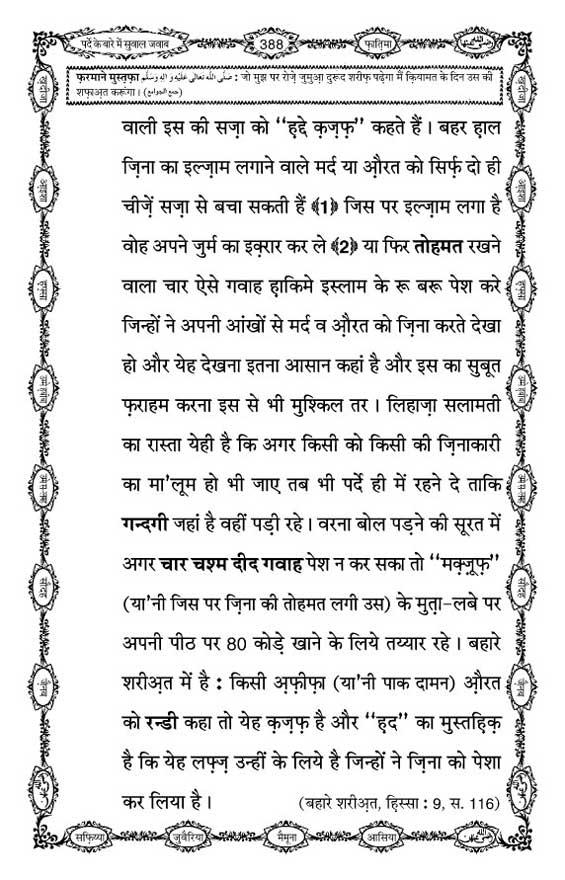 पर्दे के बारे में सुवाल जवाब
388
फ़ातिमा
फ़रमाने मुस्तफ़ा صَلَّى اللّٰهُ تَعَالٰى عَلَيْهِ وَاٰلِهٖ وَسَلَّم : जो मुझ पर रोज़े जुमुआ दुरूद शरीफ़ पढ़ेगा मैं क़ियामत के दिन उस की
शफ़ाअ़त करूंगा। (جمع الجوامع)
वाली इस की सज़ा को “ह़द्दे क़ज़फ़” कहते हैं। बहर ह़ाल
ज़िना का इल्ज़ाम लगाने वाले मर्द या औ़रत को सिर्फ़ दो ही
चीज़ें सज़ा से बचा सकती हैं ﴾1﴿ जिस पर इल्ज़ाम लगा है
वोह अपने जुर्म का इक़्रार कर ले ﴾2﴿ या फिर तोहमत रखने
वाला चार ऐसे गवाह ह़ाकिमे इस्लाम के रू बरू पेश करे
जिन्हों ने अपनी आंखों से मर्द व औ़रत को ज़िना करते देखा
हो और येह देखना इतना आसान कहां है और इस का सुबूत
फ़राहम करना इस से भी मुश्किल तर। लिहाज़ा सलामती
का रास्ता येही है कि अगर किसी को किसी की ज़िनाकारी
का मा’लूम हो भी जाए तब भी पर्दे ही में रहने दे ताकि
गन्दगी जहां है वहीं पड़ी रहे। वरना बोल पड़ने की सूरत में
अगर चार चश्म दीद गवाह पेश न कर सका तो “मक़्ज़ूफ़”
(या’नी जिस पर ज़िना की तोहमत लगी उस) के मुत़ा-लबे पर
अपनी पीठ पर 80 कोड़े खाने के लिये तय्यार रहे। बहारे
शरीअ़त में है : किसी अ़फ़ीफ़ा (या’नी पाक दामन) औ़रत
को रन्डी कहा तो येह क़ज़फ़ है और “ह़द” का मुस्तह़िक़
है कि येह लफ़्ज़ उन्हीं के लिये है जिन्हों ने ज़िना को पेशा
कर लिया है। (बहारे शरीअ़त, हिस्सा : 9, स. 116)
सफ़िय्या
जुवैरिया
मैमूना
आसिया